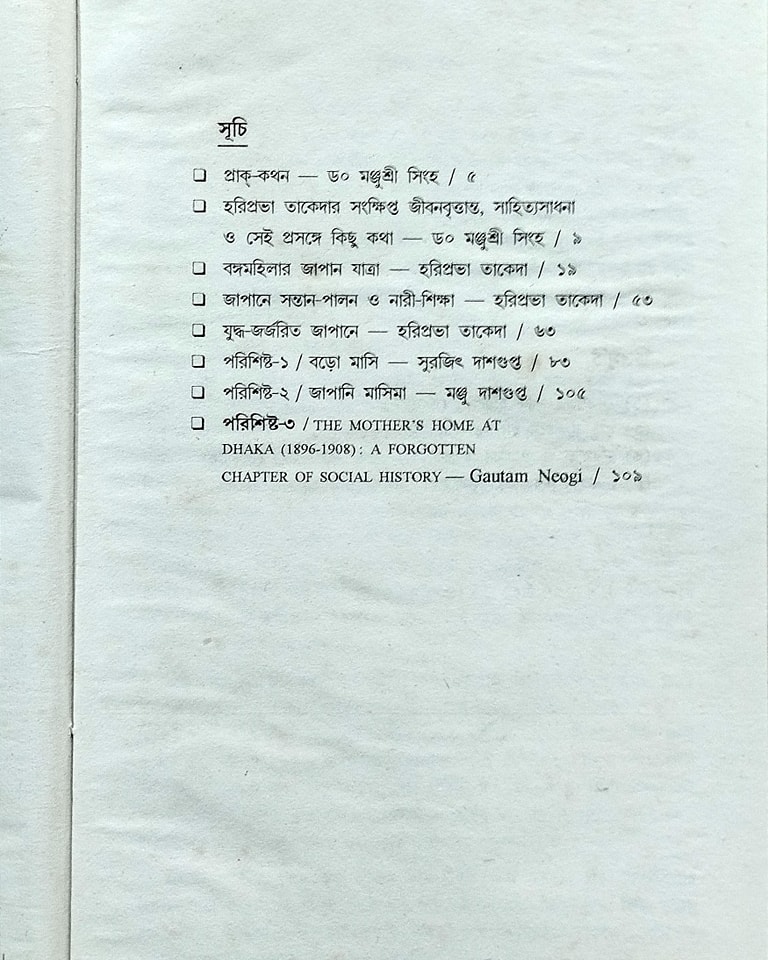 সূচি
❑ প্রাক্-কথন — ড০ মঞ্জুশ্রী সিংহ / ৫
❑ হরিপ্রভা তাকেদার সংক্ষিপ্ত জীবনবৃত্তান্ত, সাহিত্যসাধনা
ও সেই প্রসঙ্গে কিছু কথা — ড০ মঞ্জুশ্রী সিংহ / ৯
❑ বঙ্গমহিলার জাপান যাত্রা — হরিপ্রভা তাকেদা / ১৯
❑ জাপানে সন্তান-পালন ও নারী-শিক্ষা — হরিপ্রভা তাকেদা / ৫৩
❑ যুদ্ধ-জর্জরিত জাপানে — হরিপ্রভা তাকেদা / ৬৩
❑ পরিশিষ্ট-১ / বড়ো মাসি — সুরজিৎ দাশগুপ্ত / ৮৩
❑ পরিশিষ্ট-২ / জাপানি মাসিমা — মঞ্জু দাশগুপ্ত / ১০৫
❑ পরিশিষ্ট-৩ / THE MOTHER'S HOME AT
DHAKA (1896-1908) : A FORGOTTEN
CHAPTER OF SOCIAL HISTORY — Gautam Neogi / ১০৯